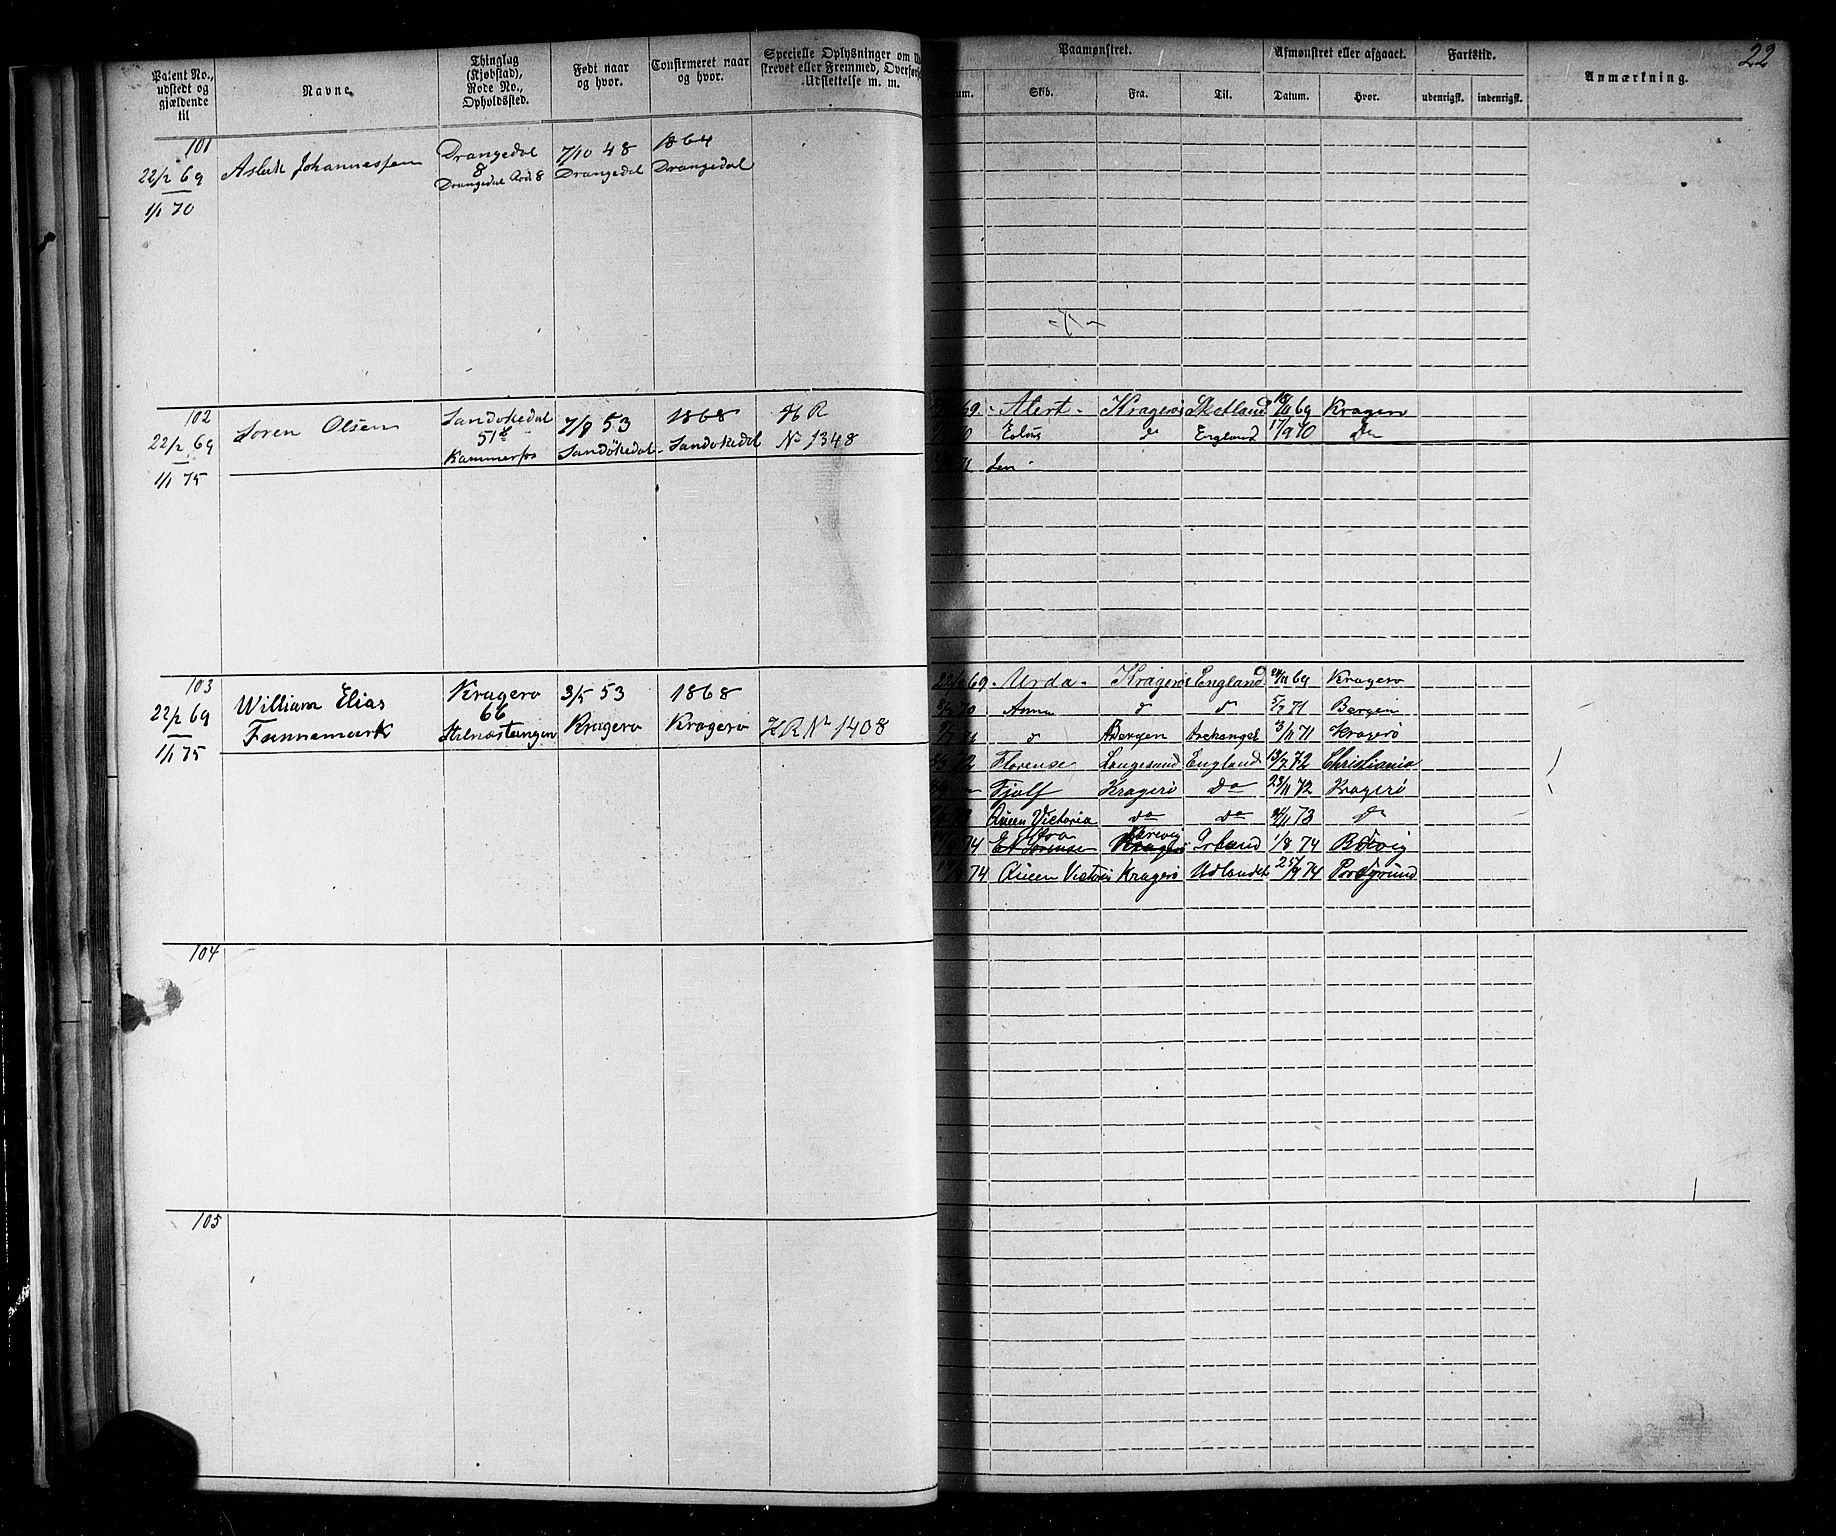 22
Patent No., udstedt og gjældende til
Navne
Thinglag (Kjøbstad), Rode No., Opholdssted.
Født naar og hvor.
Confirmeret naar og hvor.
Specielle Oplysninger om
strevet eller Fremmed, Overført
Udslettelse m. m.
Paamønstret.
Skib. Fra. Til.
Afmønstret eller afgaaet.
Datum. Hvor.
Fartstid.
udenrigsk. indenrigsk.
Anmærkning.
101
22/2 69
1/1 70
Aslak Johannessen
Drangedal
8
Drangedal Rode 8
7/10 48
Drangedal
1864
Drangedal
102
22/2 69
1/1 75
Soren Olsen
Sandokedal
51
Kammerfos
7/8 53
Sandökedal
1868
Sandokedal
HR
No 1348
69 Alert Kragerö Shetland 69 Kragerø
70 Eolus do England 17/9 70 do
71
103
22/2 69
1/1 75
William Elias
Fannemark
Kragero
66
Stilnestangen
3/5 53
Kragero
1868
Kragero
HR No 1408
69 Urda Kragerö England 69 Kragero
70 Anna d d 5/7 71 Bergen
d Bergen Archangel 3/11 71 Kragerö
72 Florense Langesund England 13/7 72 Christiania
Fjalf Kragerö do 23/11 72 Kragerö
Queen Victoria do do 73 do
74 Irland 1/8 74
74 Queen Victoria Kragerö Udlandet 74 Porsgrund
104
105